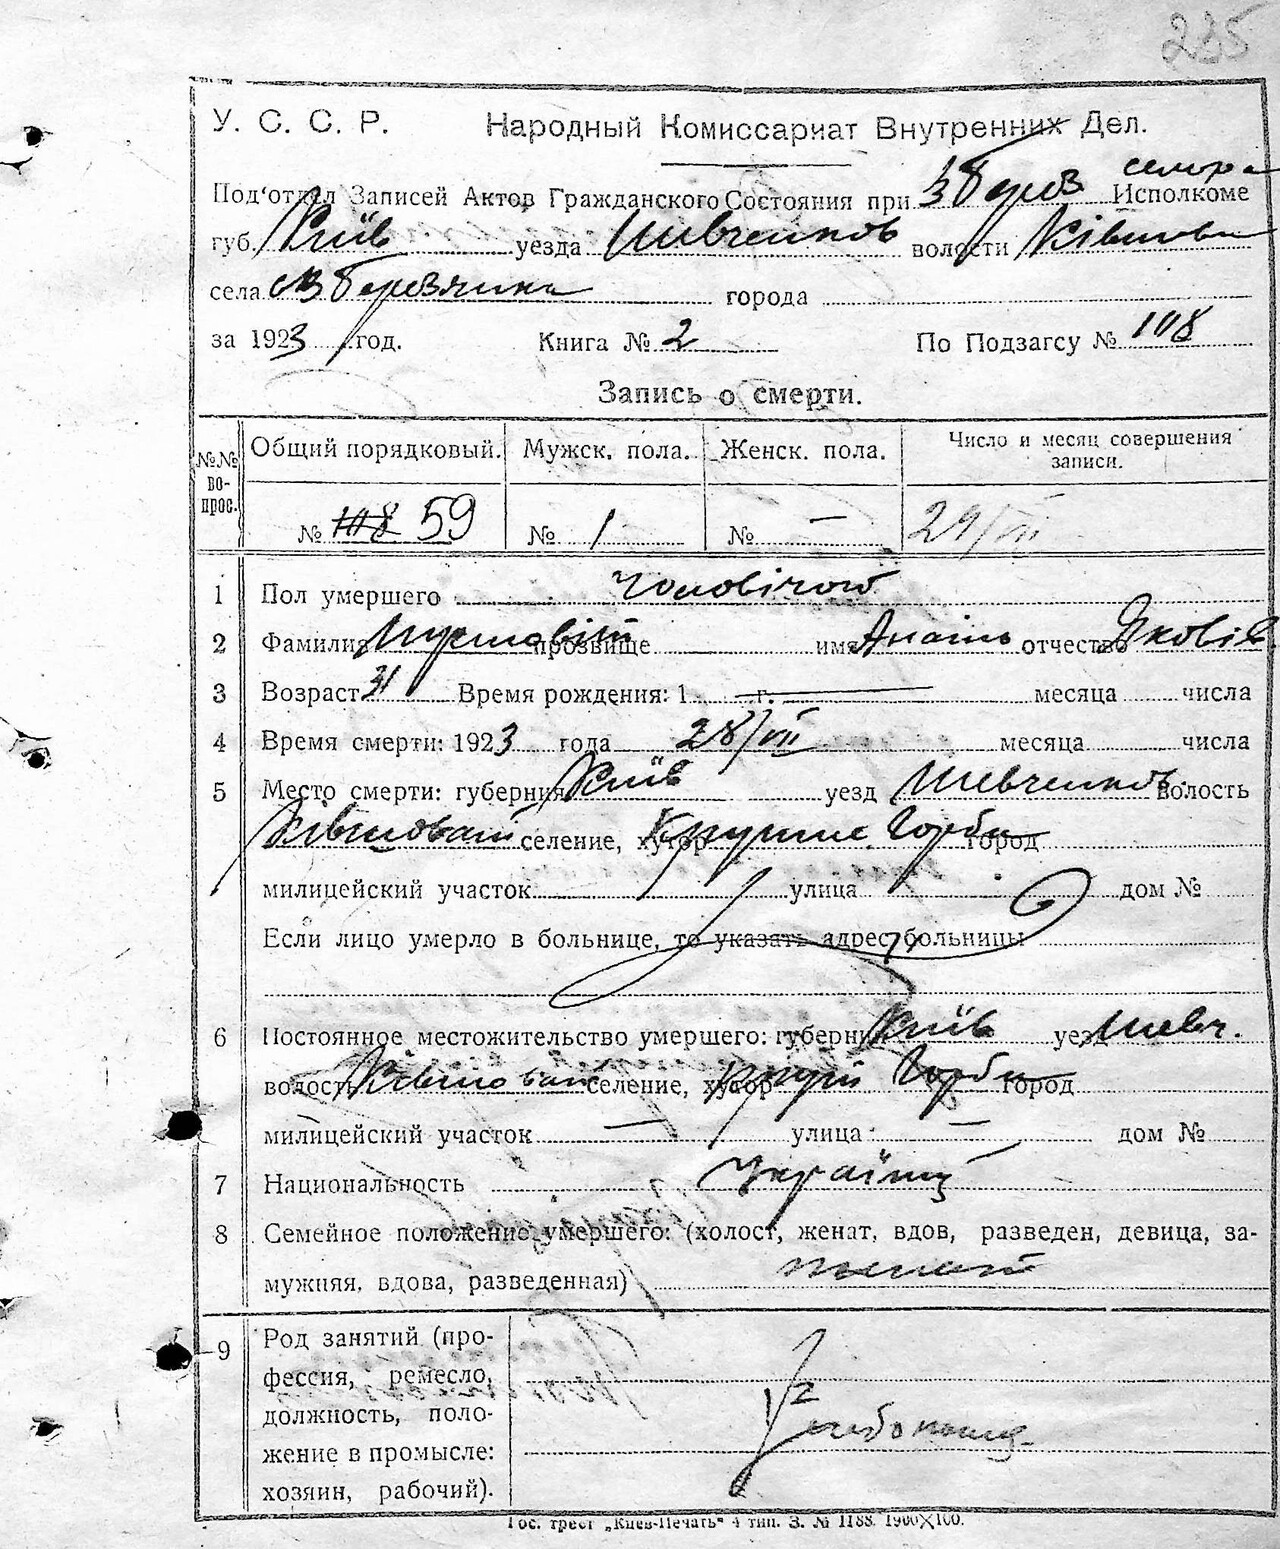 235
У. С. С. Р. Народный Комиссариат Внутренних Дел.
Под'отдел Записей Актов Гражданского Состояния при Исполкоме
губ. Київ уезда Шевченков волости
села города
за 1923 год. Книга № 2 По Подзагсу № 108
Запись о смерти.
№№ вопрос. Общий порядковый. Мужск. пола. Женск. пола. Число и месяц совершения записи.
№ 108 59 № 1 № — 29/VII
1 Пол умершего Чоловічой
2 Фамилия прозвище имя отчество Яковів
3 Возраст 31 Время рождения: 1 г. месяца числа
4 Время смерти: 1923 года 28/VII месяца числа
5 Место смерти: губерния Київ уезд Шевченков. волость
селение, хутор Горби город
милицейский участок улица дом №
Если лицо умерло в больнице, то указать адрес больницы
6 Постоянное местожительство умершего: губерния Київ уезд Шевч.
волость селение, хутор Горби город
милицейский участок — улица — дом №
7 Национальность Українц
8 Семейное положение умершего: (холост, женат, вдов, разведен, девица, за-
мужняя, вдова, разведенная)
9 Род занятий (про-
фессия, ремесло,
должность, поло-
жение в промысле:
хозяин, рабочий).
Гос. трест „Киев-Печать" 4 тип. З. № 1188. 1900×100.